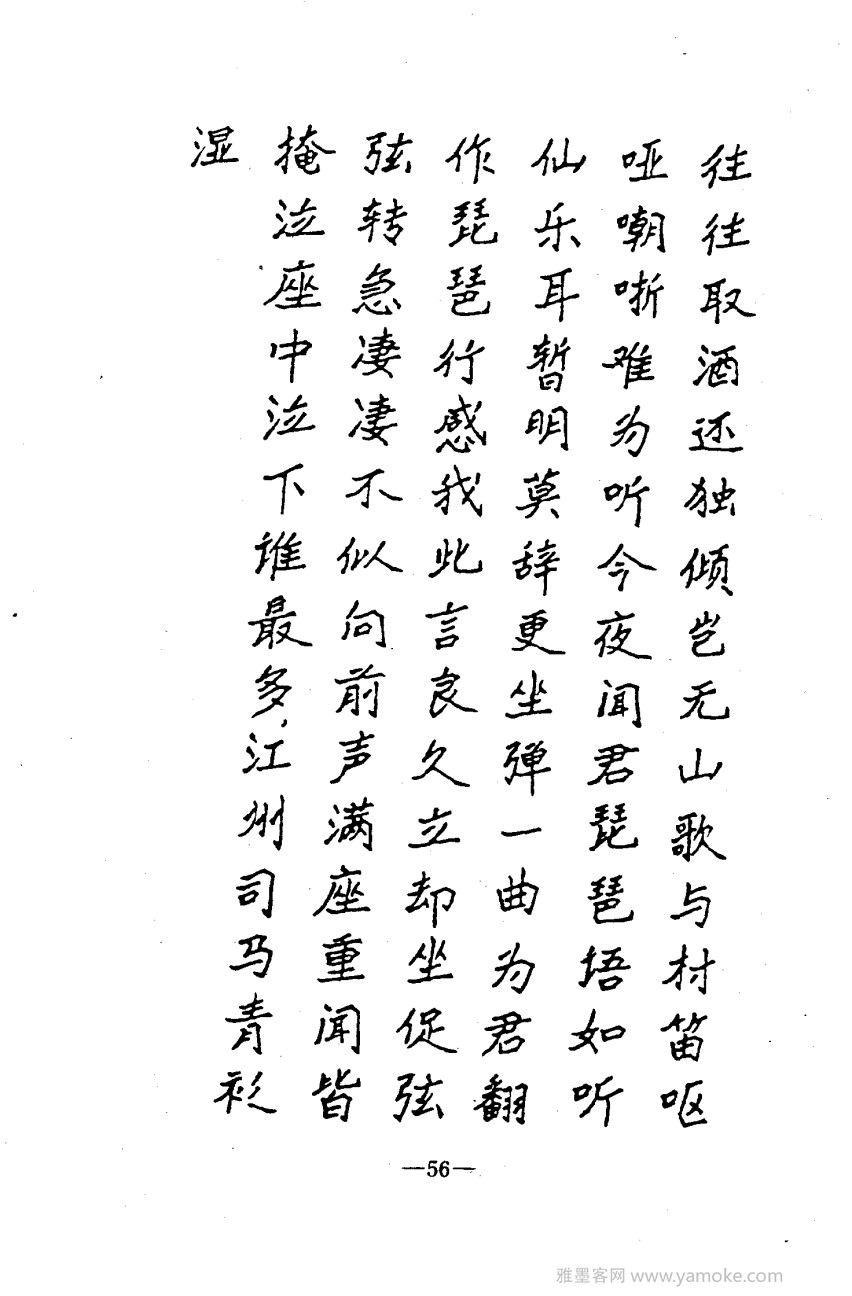 往往取酒还独倾岂无山歌与村笛呕
哑嘲哳难为听今夜闻君琵琶捂如听
仙乐耳暂明莫辞更坐弹一曲为君翻
作琵琶行感我此言良久立却坐促弦
弦转急凄凄不似向前声满座重闻皆
掩泣座中泣下谁最多,江州司马青衫
湿
—56—
雅墨客网 www.yamoke.com